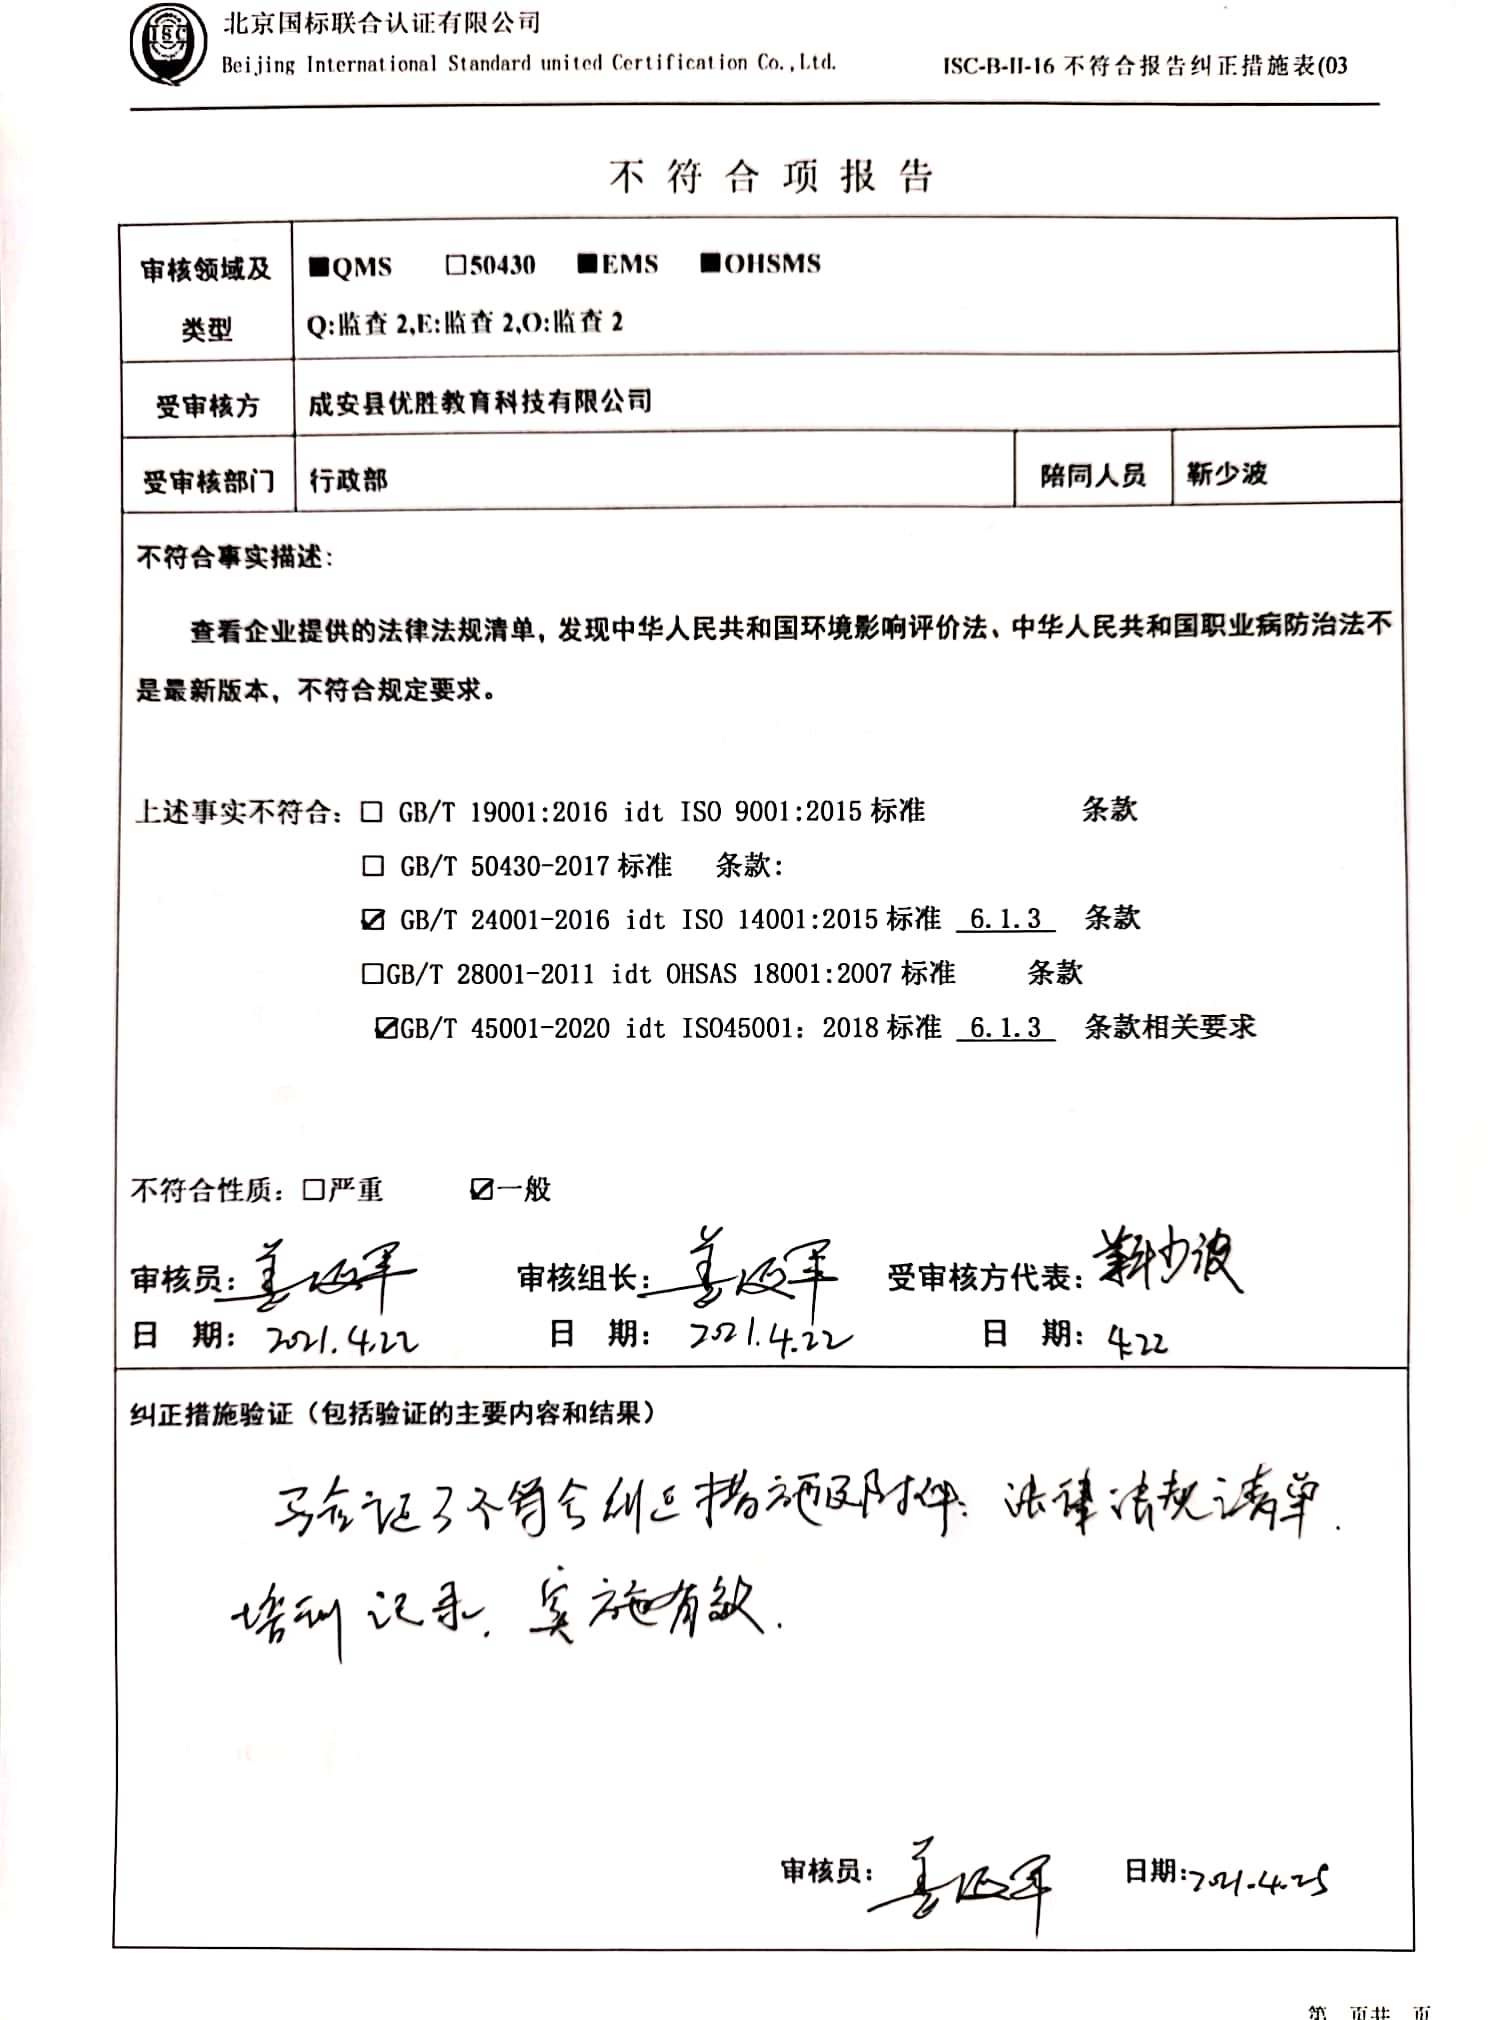 北京国标联合认证有限公司
Beijing International Standard united Certification Co.,Ltd.
ISC-B-II-16 不符合报告纠正措施表(03
ISC
不符合项报告
审核领域及类型
■QMS □50430 ■EMS ■OHSMS
Q:监查 2,E:监查 2,O:监查 2
受审核方 成安县优胜教育科技有限公司
受审核部门 行政部 陪同人员 靳少波
不符合事实描述:
查看企业提供的法律法规清单,发现中华人民共和国环境影响评价法、中华人民共和国职业病防治法不
是最新版本，不符合规定要求。
上述事实不符合: □ GB/T 19001:2016 idt ISO 9001:2015 标准 条款
□ GB/T 50430-2017 标准 条款:
☑ GB/T 24001-2016 idt ISO 14001:2015 标准 6.1.3 条款
□GB/T 28001-2011 idt OHSAS 18001:2007 标准 条款
☑GB/T 45001-2020 idt ISO45001: 2018 标准 6.1.3 条款相关要求
不符合性质: □严重 ☑一般
审核员: 审核组长: 受审核方代表: 靳少波
日 期: 2021.4.22 日 期: 2021.4.22 日 期: 4.22
纠正措施验证（包括验证的主要内容和结果）
验证了不符合纠正措施及附件: 法律法规清单.
培训记录. 实施有效.
审核员: 日期: 2021.4.25
第 页共 页